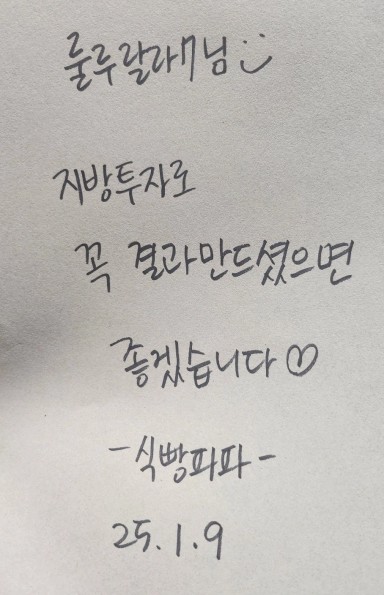 룰루랄라7님 :)
지방투자로
꼭 결과만드셨으면
좋겠습니다♡
-식빵파파-
25.1.9